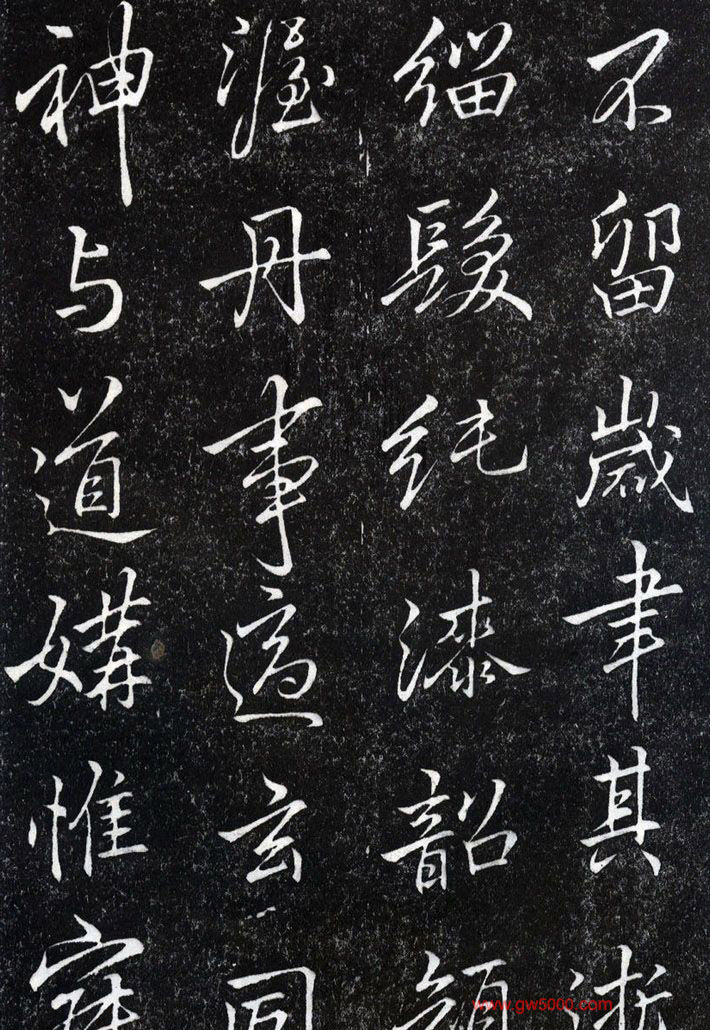 不留歲聿其淅
緇髮純漆韶顏
渥丹事適玄同
神与道媾惟寂
www.gw5000.com